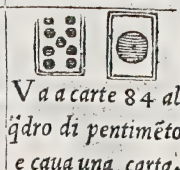 Va a carte 84 al
q̃dro di pentimẽto
e caua una carta.